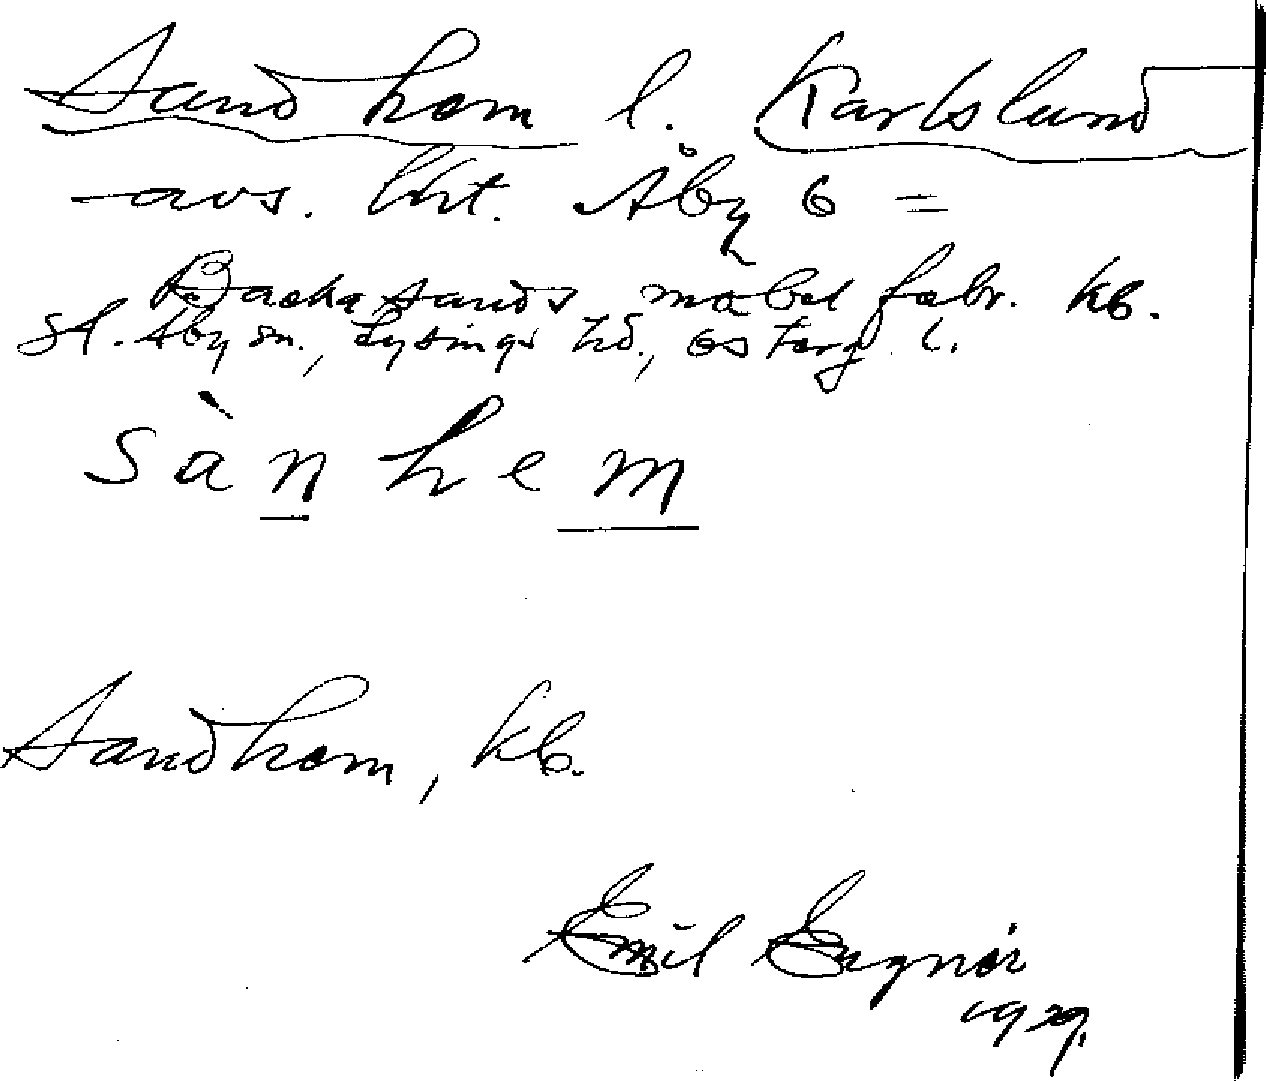 Sandhem l. Karlslund
avs. Krt. Åby 6 =
Backasands möbelfabr. kb.
St. Åby sn., Lysings hd., Österg. l.
sànhem
Sandhem, kb.
Emil Eugnér
1929.